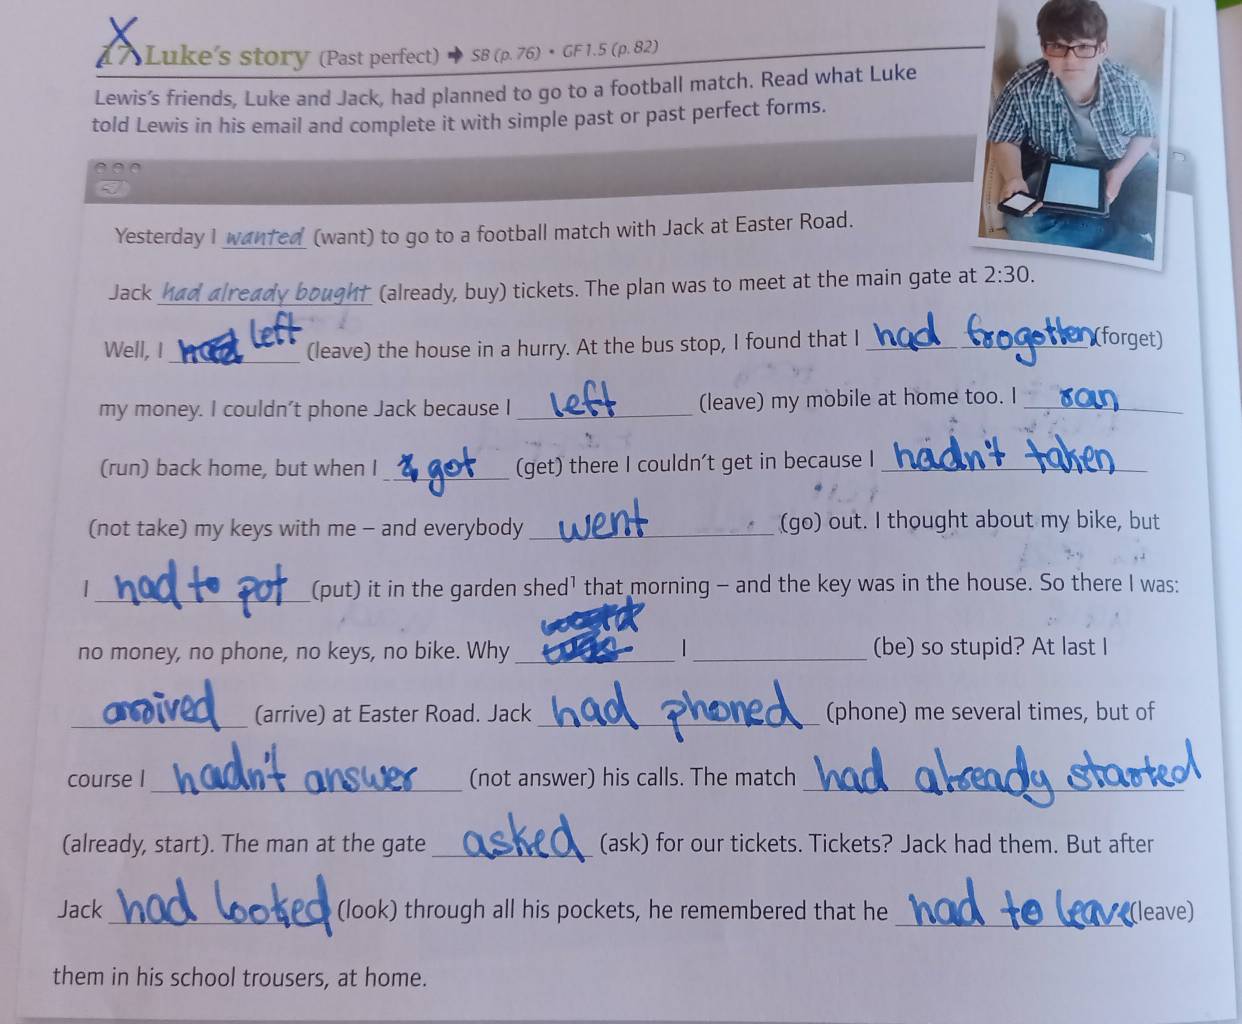 17 Luke's story (Past perfect) ➡ SB (p. 76) • GF 1.5 (p. 82)
Lewis's friends, Luke and Jack, had planned to go to a football match. Read what Luke
told Lewis in his email and complete it with simple past or past perfect forms.
Yesterday I wanted (want) to go to a football match with Jack at Easter Road.
Jack had already bought (already, buy) tickets. The plan was to meet at the main gate at 2:30.
Well, I left (leave) the house in a hurry. At the bus stop, I found that I had frogotten (forget)
my money. I couldn't phone Jack because I left (leave) my mobile at home too. I ran
(run) back home, but when I got (get) there I couldn't get in because I hadn't taken
(not take) my keys with me – and everybody went (go) out. I thought about my bike, but
I had to pot (put) it in the garden shed¹ that morning – and the key was in the house. So there I was:
no money, no phone, no keys, no bike. Why ___ I ___ (be) so stupid? At last I
arrived (arrive) at Easter Road. Jack had phoned (phone) me several times, but of
course I hadn't answer (not answer) his calls. The match had already started
(already, start). The man at the gate asked (ask) for our tickets. Tickets? Jack had them. But after
Jack had looked (look) through all his pockets, he remembered that he had to leave (leave)
them in his school trousers, at home.